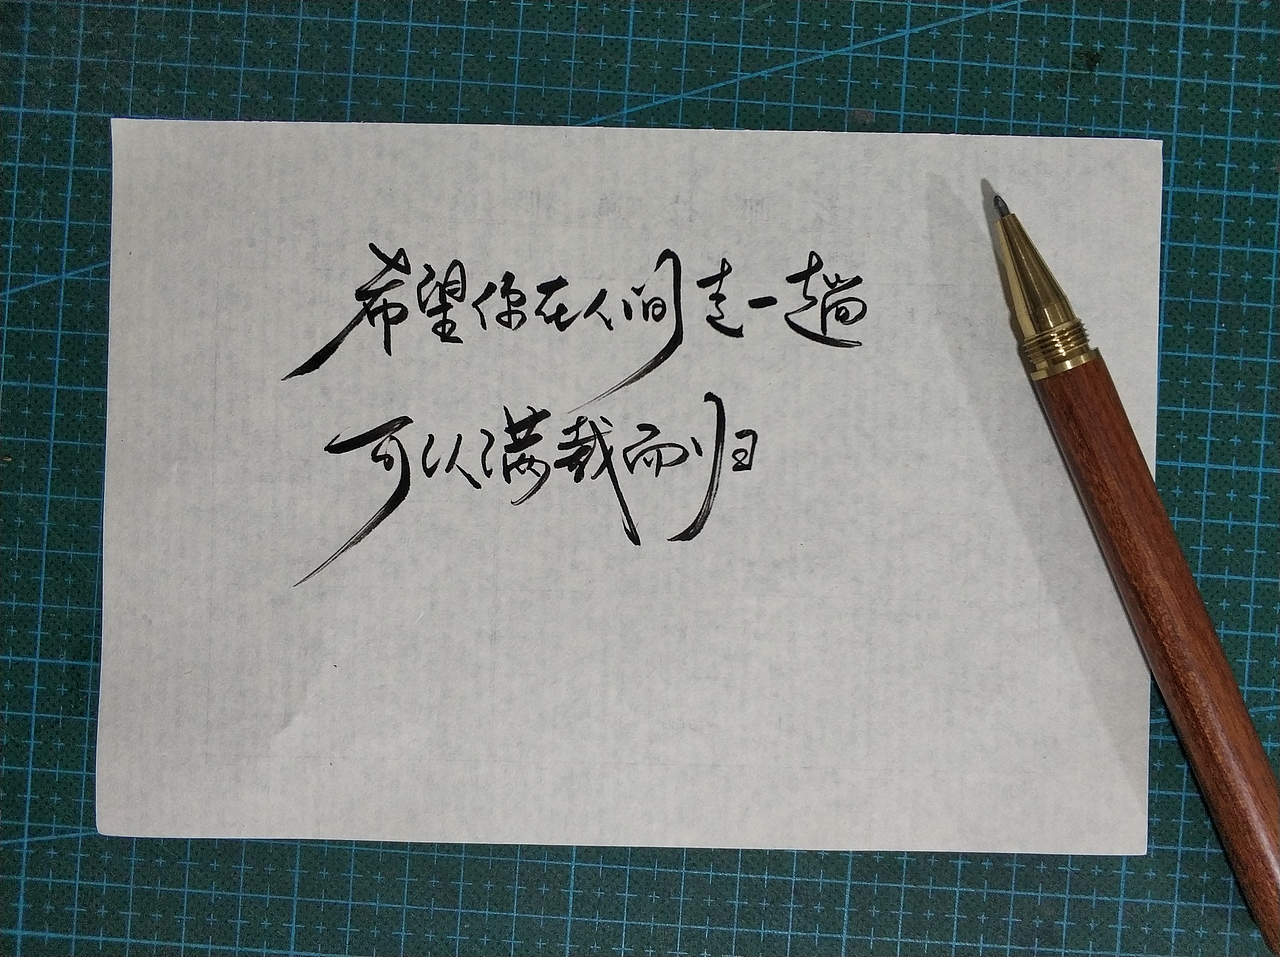 希望你在人间走一趟
可以满载而归